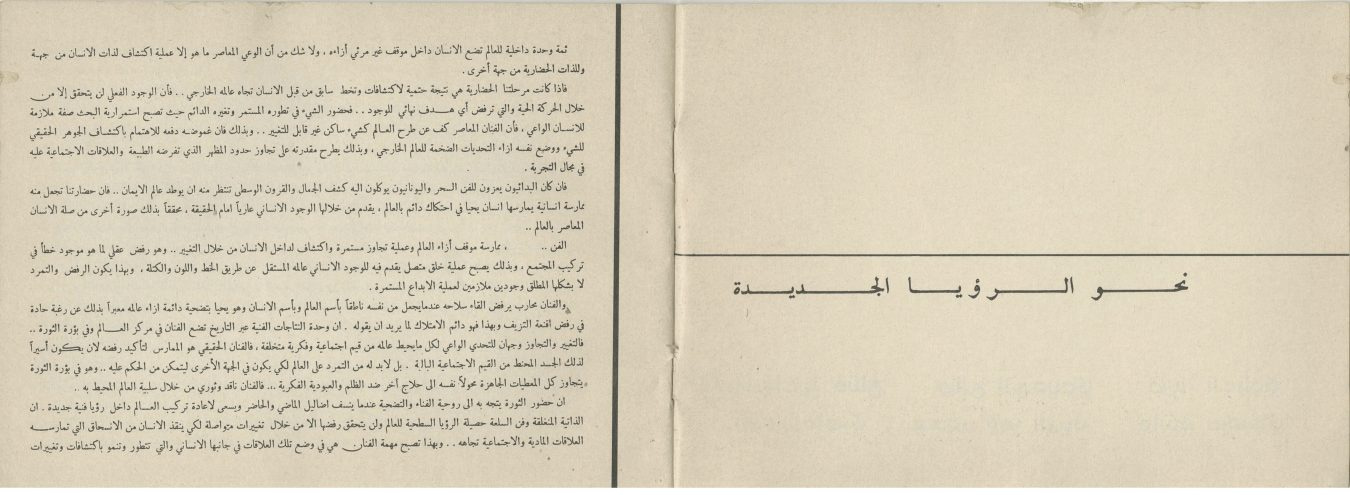 نحو الرؤيا الجديدة
ثمة وحدة داخلية للعالم تضع الانسان داخل موقف غير مرئي أزاءه ، ولا شك من أن الوعي المعاصر ما هو إلا عملية اكتشاف لذات الانسان من جهة
وللذات الحضارية من جهة أخرى .
فاذا كانت مرحلتنا الحضارية هي نتيجة حتمية لاكتشافات وتخط سابق من قبل الانسان تجاه عالمه الخارجي . . فأن الوجود الفعلي لن يتحقق إلا من
خلال الحركة الحية والتي ترفض أي هدف نهائي للوجود . . فحضور الشيء في تطوره المستمر وتغيره الدائم حيث تصبح استمرارية البحث صفة ملازمة
للانسان الواعي ، فأن الفنان المعاصر كف عن طرح العالم كشيء ساكن غير قابل للتغيير . . وبذلك فان غموضه دفعه للاهتمام باكتشاف الجوهر الحقيقي
للشيء ووضع نفسه ازاء التحديات الضخمة للعالم الخارجي ، وبذلك يطرح مقدرته على تجاوز حدود المظهر الذي تفرضه الطبيعة والعلاقات الاجتماعية عليه
في مجال التجربة .
فان كان البدائيون يعزون للفن السحر واليونانيون يوكلون اليه كشف الجمال والقرون الوسطى تنتظر منه ان يوطد عالم الايمان .. فان حضارتنا تجعل منه
ممارسة انسانية يمارسها انسان يحيا في احتكاك دائم بالعالم ، يقدم من خلالها الوجود الانساني عارياً امام الحقيقة ، محققاً بذلك صورة أخرى من صلة الانسان
المعاصر بالعالم ..
الفن .. ، ممارسة موقف أزاء العالم وعملية تجاوز مستمرة واكتشاف لداخل الانسان من خلال التغيير .. وهو رفض عقلي لما هو موجود خطأ في
تركيب المجتمع ، وبذلك يصبح عملية خلق متصل يقدم فيه للوجود الانساني عالمه المستقل عن طريق الخط واللون والكتلة ، وبهذا يكون الرفض والتمرد
لا بشكلها المطلق وجودين ملازمين لعملية الابداع المستمرة .
والفنان محارب يرفض القاء سلاحه عندمايجعل من نفسه ناطقاً بأسم العالم وبأسم الانسان وهو يحيا بتضحية دائمة ازاء عالمه معبراً بذلك عن رغبة حادة
في رفض اقنعة التزيف وبهذا فهو دائم الامتلاك لما يريد ان يقوله . ان وحدة النتاجات الفنية عبر التاريخ تضع الفنان في مركز العالم وفي بؤرة الثورة ..
فالتغيير والتجاوز وجهان للتحدي الواعي لكل مايحيط عالمه من قيم اجتماعية وفكرية متخلفة ، فالفنان الحقيقي هو الممارس لتأكيد رفضه لان يكون أسيراً
لذلك الجسد المحنط من القيم الاجتماعية البالية . بل لابد له من التمرد على العالم لكي يكون في الجهة الأخرى ليتمكن من الحكم عليه .. وهو في بؤرة الثورة
يتجاوز كل المعطيات الجاهزة محولاً نفسه الى حلاج آخر ضد الظلم والعبودية الفكرية ... فالفنان ناقد وثوري من خلال سلبية العالم المحيط به ..
ان حضور الثورة يتجه به الى روحية الفناء والتضحية عندما ينسف اضاليل الماضي والحاضر ويسعى لاعادة تركيب العالم داخل رؤيا فنية جديدة . ان
الذاتية المنغلقة وفن السلعة حصيلة الرؤيا السطحية للعالم ولن يتحقق رفضها الا من خلال تغييرات متواصلة لكي ينقذ الانسان من الانسحاق التي تمارسه
العلاقات المادية والاجتماعية تجاهه . . وبهذا تصبح مهمة الفنان هي في وضع تلك العلاقات في جانبها الانساني والتي تتطور وتنمو باكتشافات وتغييرات